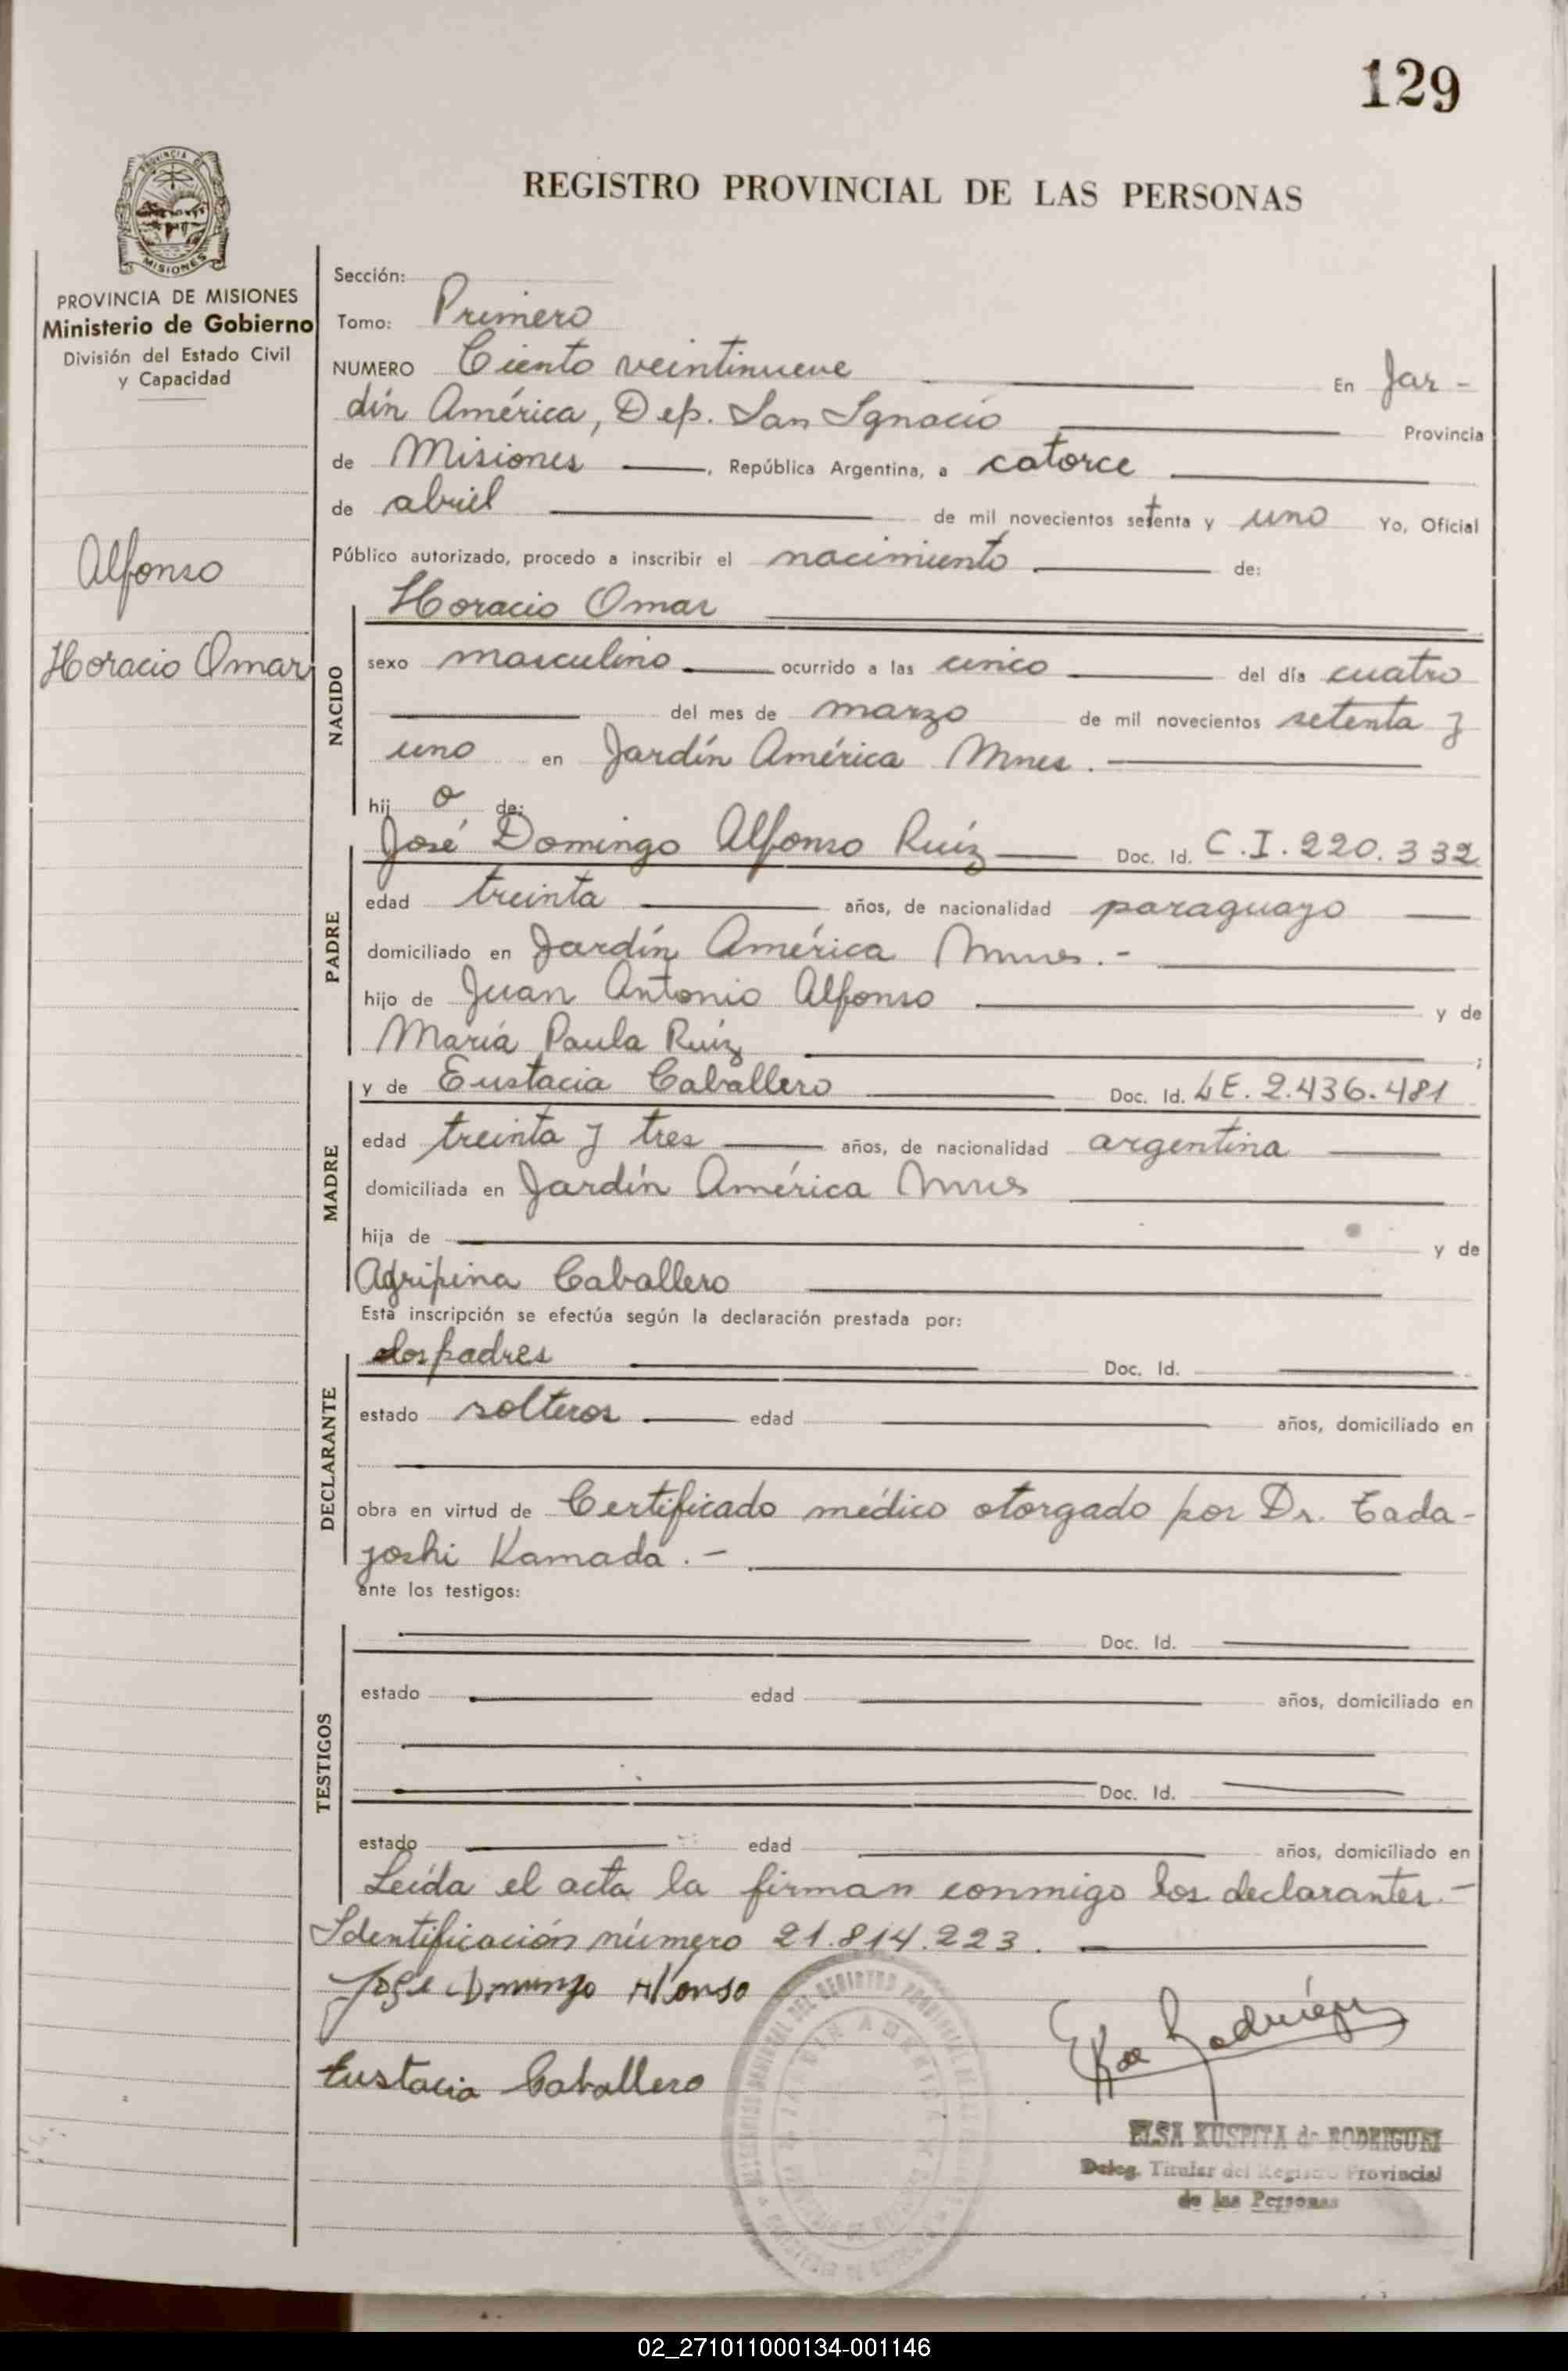 129
REGISTRO PROVINCIAL DE LAS PERSONAS
PROVINCIA DE MISIONES
Ministerio de Gobierno
División del Estado Civil
y Capacidad
Alfonso
Horacio Omar
Sección:
Tomo: Primero
NUMERO Ciento veintinueve En Jar-
dín América, Dep. San Ignacio Provincia
de Misiones, República Argentina, a catorce
de abril de mil novecientos setenta y uno Yo, Oficial
Público autorizado, procedo a inscribir el nacimiento de:
NACIDO
Horacio Omar
sexo masculino ocurrido a las cinco del día cuatro
del mes de marzo de mil novecientos setenta y
uno en Jardín América Mnes.
hij o de:
PADRE
José Domingo Alfonso Ruíz Doc. Id. C.I. 220.332
edad treinta años, de nacionalidad paraguayo
domiciliado en Jardín América Mnes.-
hijo de Juan Antonio Alfonso y de
María Paula Ruíz ;
MADRE
y de Eustacia Caballero Doc. Id. LE. 2.436.481
edad treinta y tres años, de nacionalidad argentina
domiciliada en Jardín América Mnes
hija de y de
Agripina Caballero
Esta inscripción se efectúa según la declaración prestada por:
DECLARANTE
los padres Doc. Id.
estado solteros edad años, domiciliado en
obra en virtud de Certificado médico otorgado por Dr. Tada-
yoshi Kamada.-
ante los testigos:
TESTIGOS
Doc. Id.
estado edad años, domiciliado en
Doc. Id.
estado edad años, domiciliado en
Leída el acta la firman conmigo los declarantes.-
Identificación número 21.814.223.
Jose Domingo Alfonso
Eustacia Caballero
Rodríguez
ELSA KUSPITA de RODRIGUEZ
Deleg. Titular del Registro Provincial
de las Personas
02_271011000134-001146